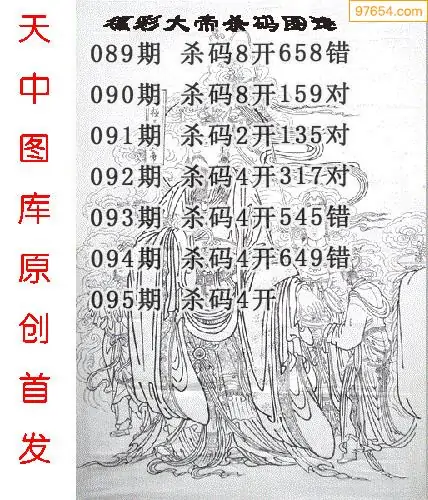 97654.com
福彩大帝杀码图迷
天中图库原创首发
089期 杀码8开658错
090期 杀码8开159对
091期 杀码2开135对
092期 杀码4开317对
093期 杀码4开545错
094期 杀码4开649错
095期 杀码4开